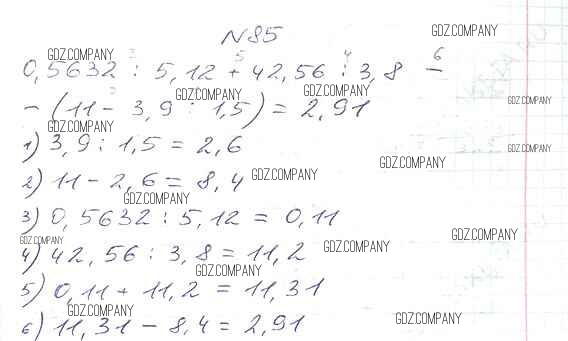 N85
GDZ.COMPANY
GDZ.COMPANY
3 5 4 6
0,5632 : 5,12 + 42,56 : 3,8 -
GDZ.COMPANY GDZ.COMPANY
GDZ.COMPANY
- (11 - 3,9 : 1,5) = 2,91
GDZ.COMPANY
1) 3,9 : 1,5 = 2,6
GDZ.COMPANY
GDZ.COMPANY
2) 11 - 2,6 = 8,4
GDZ.COMPANY
GDZ.COMPANY
3) 0,5632 : 5,12 = 0,11
GDZ.COMPANY
GDZ.COMPANY
GDZ.COMPANY
4) 42,56 : 3,8 = 11,2
GDZ.COMPANY
5) 0,11 + 11,2 = 11,31
GDZ.COMPANY
GDZ.COMPANY
6) 11,31 - 8,4 = 2,91